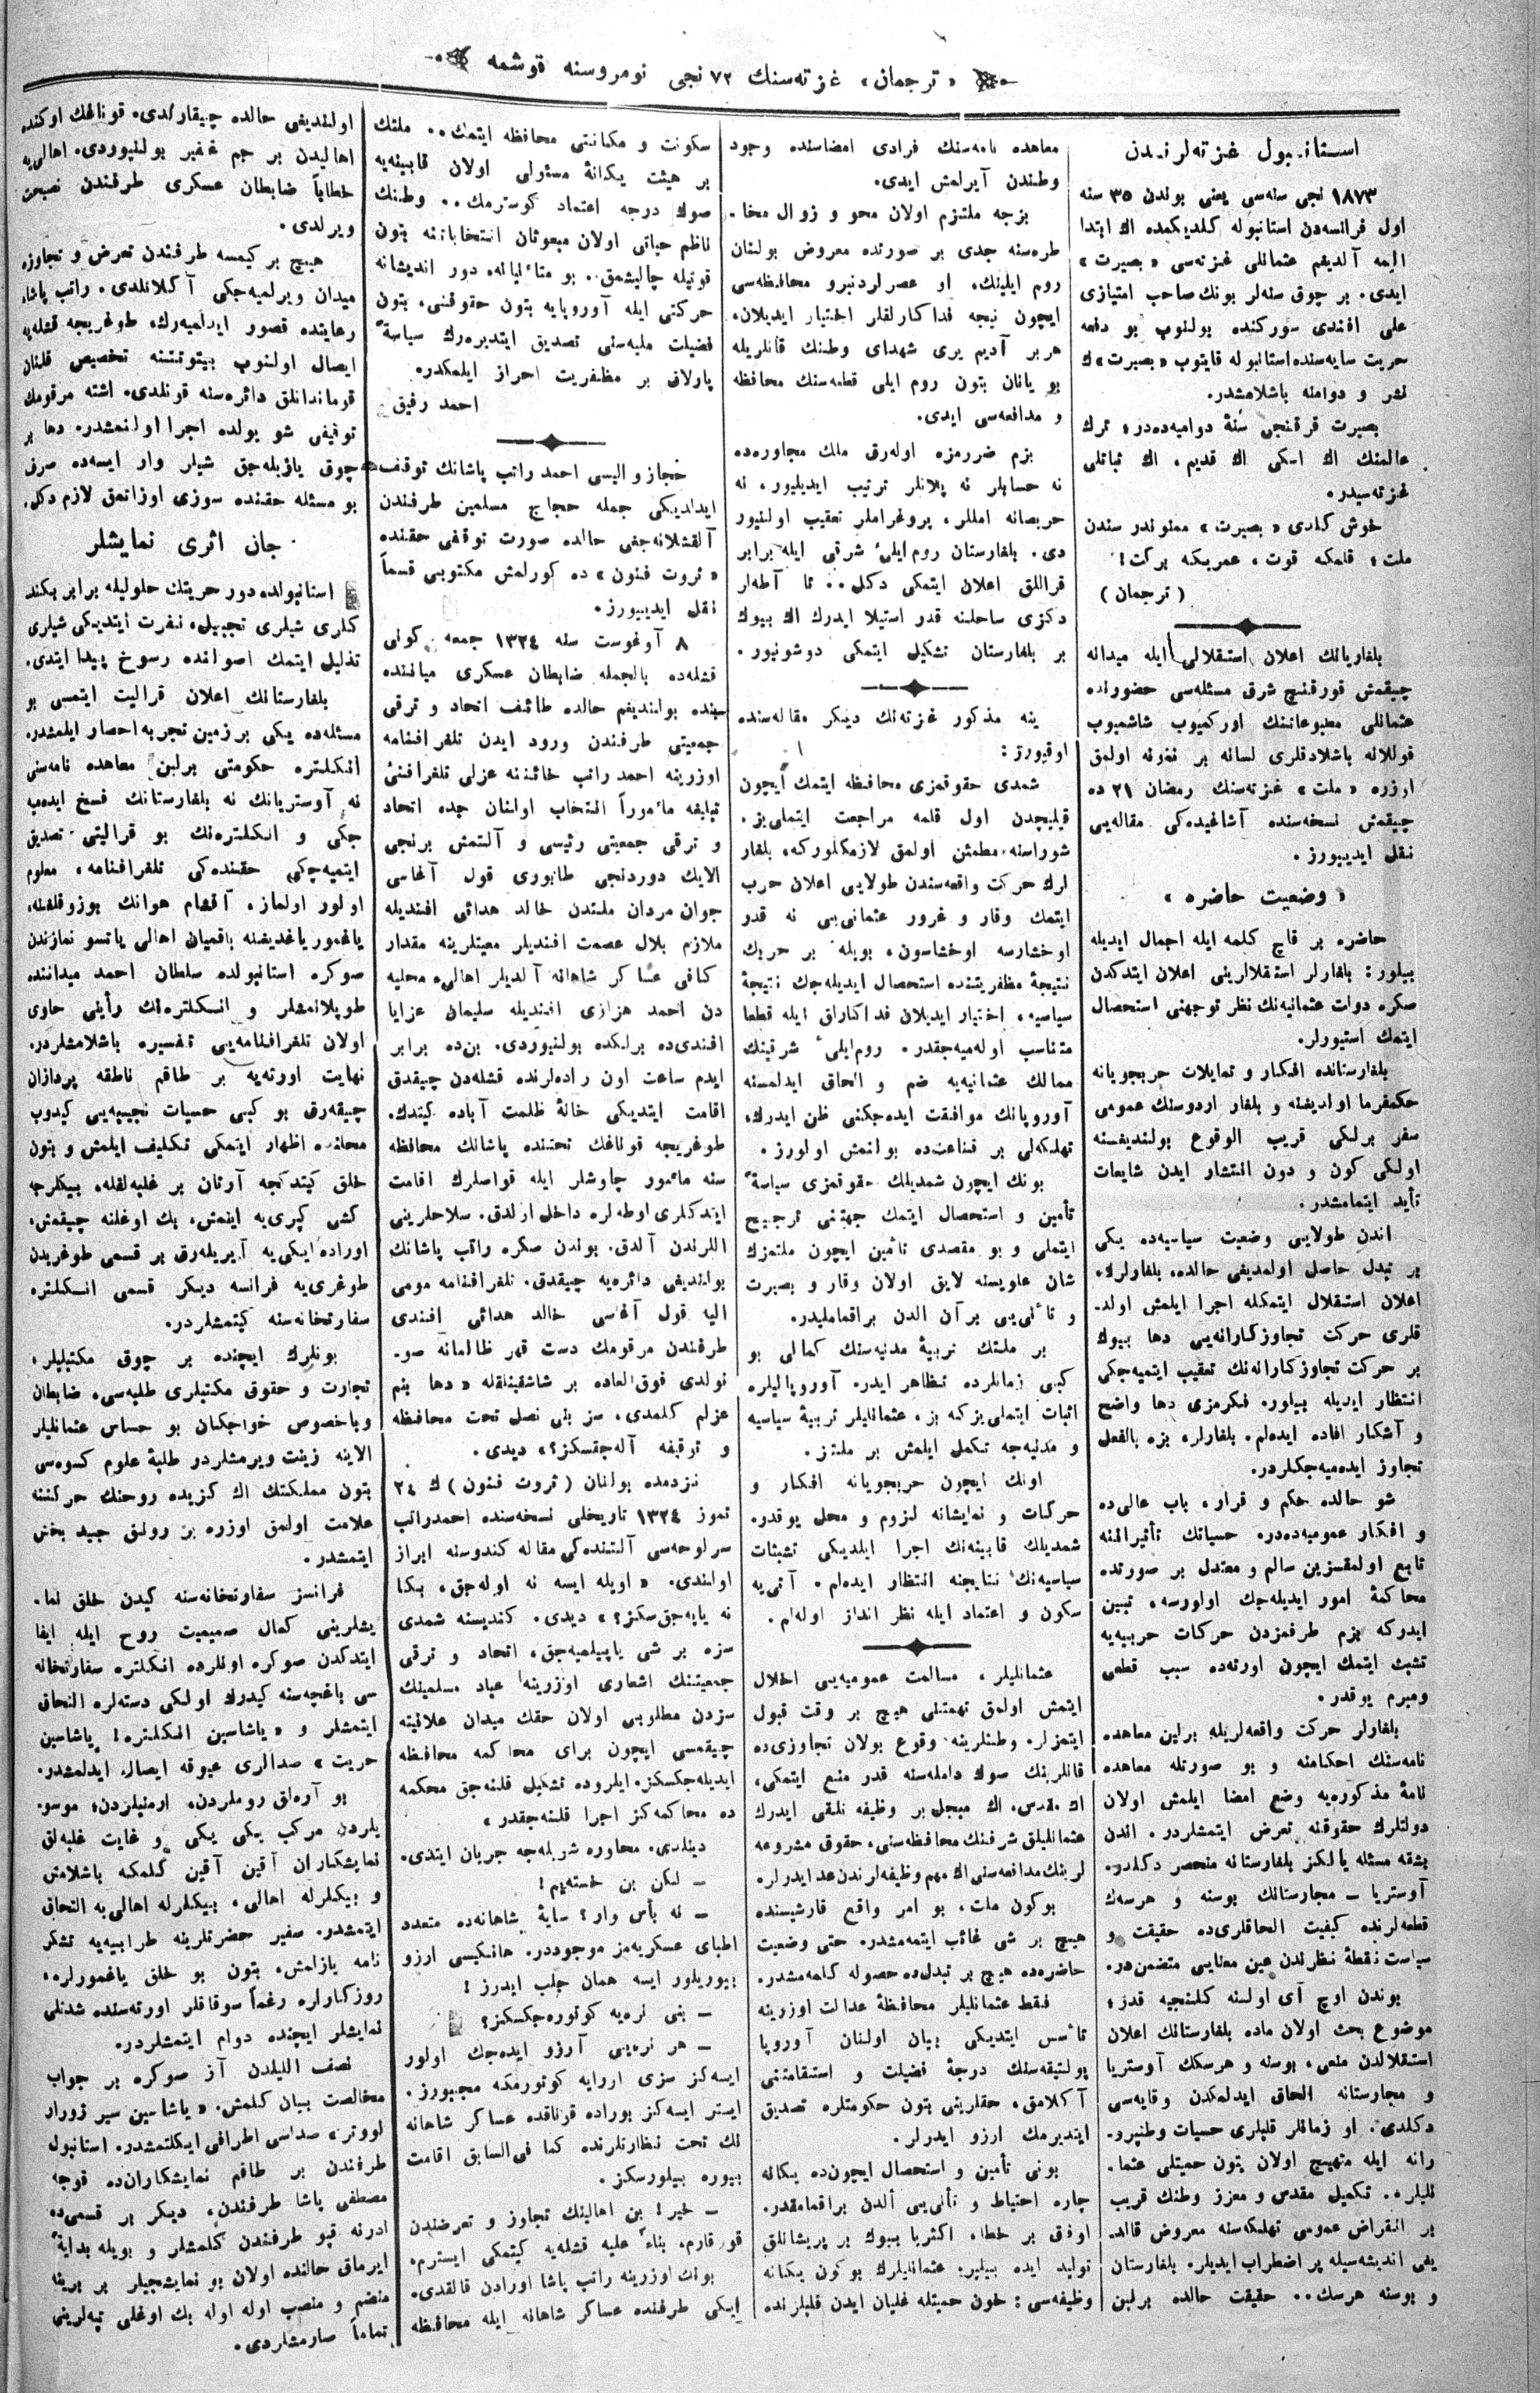 « ترجمان » غزته‌سنك ٧٢ نجی نومروسنه قوشمه
استانبول غزته‌لرندن
١٨٧٣ نجی سنه‌سی یعنی بوندن ٣٥ سنه
اول فرانسه‌دن استانبوله كلدیكمده اك ابتدا
الیمه آلدیغم عثمانلی غزته‌سی « بصیرت »
ایدی. بر چوق سنه‌لر بونك صاحب امتیازی
علی افندی سوركنده بولنوب بو دفعه
حریت سایه‌سنده استانبوله قایتوب « بصیرت »ك
نشر و دوامنه باشلامشدر.
بصیرت قرقنجی سنهٔ دوامیه‌ده‌در؛ ترك
عالمنك اك اسكی اك قدیم، اك ثباتلی
غزته‌سیدر.
خوش كلدی « بصیرت » ممنوندر سندن
ملت؛ قلمكه قوت، عمریكه بركت!
( ترجمان )
بلغاریانك اعلان استقلالی ایله میدانه
چیقمش قورقنچ شرق مسئله‌سی حضورنده
عثمانلی مطبوعاتنك اوركمیوب شاشمیوب
قوللانه باشلادقلری لسانه بر نمونه اولمق
اوزره « ملت » غزته‌سنك رمضان ٢١ ده
چیقمش نسخه‌سنده آشاغیده‌كی مقاله‌یی
نقل ایدییورز.
« وضعیت حاضره »
حاضره بر قاچ كلمه ایله اجمال ایدیله
بیلور: بلغارلر استقلالرینی اعلان ایتدكدن
صكره دولت عثمانیه‌نك نظر توجهنی استحصال
ایتمك استیورلر.
بلغارستانده افكار و تمایلات حربجویانه
حكمفرما اولدیغنه و بلغار اردوسنك عمومی
سفر برلكی قریب الوقوع بولندیغنه
اولكی كون و دون انتشار ایدن شایعات
تأید ایتمامشدر.
اندن طولایی وضعیت سیاسیه‌ده یكی
بر تبدل حاصل اولمدیغی حالده، بلغارلرك،
اعلان استقلال ایتمكله اجرا ایلمش اولد-
قلری حركت تجاوزكارانه‌یی دها بیوك
بر حركت تجاوزكارانه‌نك تعقیب ایتمیه‌جكی
انتظار ایدیله بیلور. فكرمزی دها واضح
و آشكار افاده ایده‌لم. بلغارلر، بزه بالفعل
تجاوز ایده‌میه‌جكلردر.
شو حالده حكم و قرار، باب عالی‌ده
و افكار عمومیه‌ده‌در. حسیاتك تأثیراتنه
تابع اولمقسزین سالم و معتدل بر صورتده
محاكمهٔ امور ایدیله‌جك اولورسه، تبین
ایدركه بزم طرفمزدن حركات حربییه‌یه
تشبث ایتمك ایچون اورته‌ده سبب قطعی
ومبرم یوقدر.
بلغارلر حركت واقعه‌لریله برلین معاهده
نامه‌سنك احكامنه و بو صورتله معاهده
نامهٔ مذكوره‌یه وضع امضا ایلمش اولان
دولتلرك حقوقنه تعرض ایتمشلردر. اندن
بشقه مسئله یالكز بلغارستانه منحصر دكلدر.
آوستریا ــ مجارستانك بوسنه و هرسك
قطعه‌لرنده كیفیت الحاقلری‌ده حقیقت و
سیاست نقطهٔ نظرندن عین معنایی متضمن‌در.
بوندن اوچ آی اولنه كلنجیه قدر؛
موضوع بحث اولان ماده بلغارستانك اعلان
استقلالدن منعی، بوسنه و هرسكك آوستریا
و مجارستانه الحاق ایدلمكدن وقایه‌سی
دكلدی. او زمانلر قلبلری حسیات وطنپرو-
رانه ایله متهیج اولان بتون حمیتلی عثما-
نلیلر.. تكمیل مقدس و معزز وطنك قریب
بر انقراض عمومی تهلكه‌سنه معروض قالد-
یغی اندیشه‌سیله پر اضطراب ایدیلر. بلغارستان
و بوسنه هرسك.. حقیقت حالده برلین
معاهده نامه‌سنك فرادی امضاسنده وجود
وطندن آیرلمش ایدی.
بزجه ملتزم اولان محو و زوال مخا-
طره‌سنه جدی بر صورتده معروض بولنان
روم ایلینك، او عصرلردنبرو محافظه‌سی
ایچون نیجه فداكارلقلر اختیار ایدیلان،
هربر آدیم یری شهدای وطنك قانلریله
بو یانان بتون روم ایلی قطعه‌سنك محافظه
و مدافعه‌سی ایدی.
بزم ضررمزه اوله‌رق ملك مجاورده
نه حسابلر نه پلانلر ترتیب ایدیلیور، نه
حریصانه امللر، پروغراملر تعقیب اولنیور
دی. بلغارستان روم‌ایلیٔ شرقی ایله برابر
قراللق اعلان ایتمكی دكل.. تا آطه‌لر
دكزی ساحلنه قدر استیلا ایدرك اك بیوك
بر بلغارستان تشكیل ایتمكی دوشونیور.
ینه مذكور غزته‌نك دیكر مقاله‌سنده
اوقیورز:
شمدی حقوقمزی محافظه ایتمك ایچون
قیلیچدن اول قلمه مراجعت ایتملی‌یز.
شوراسنه مطمئن اولمق لازمكلوركه، بلغار
لرك حركت واقعه‌سندن طولایی اعلان حرب
ایتمك وقار و غرور عثمانی‌یی نه قدر
اوخشارسه اوخشاسون، بویله بر حربك
نتیجهٔ مظفریتنده استحصال ایدیله‌جك نتیجهٔ
سیاسیه، اختیار ایدیلان فداكارلق ایله قطعا
متناسب اوله‌میه‌جقدر. روم‌ایلیٔ شرقینك
ممالك عثمانیه‌یه ضم و الحاق ایدلمسنه
آوروپانك موافقت ایده‌جكنی ظن ایدرك،
تهلكه‌لی بر قناعت‌ده بولنمش اولورز.
بونك ایچون شمدیلك حقوقمزی سیاسةً
تأمین و استحصال ایتمك جهتنی ترجیح
ایتملی و بو مقصدی تأمین ایچون ملتمزك
شان علویسنه لایق اولان وقار و بصیرت
و تأنی‌یی بر آن الدن براقماملیدر.
بر ملتك تربیهٔ مدنیه‌سنك كمالی بو
كبی زمانلرده تظاهر ایدر. آوروپالیلره
اثبات ایتملی‌یز كه بز، عثمانلیلر تربیهٔ سیاسیه
و مدنیه‌جه تكمل ایلمش بر ملتز.
اونك ایچون حربجویانه افكار و
حركات و نمایشانه لزوم و محل یوقدر.
شمدیلك قابینه‌نك اجرا ایلدیكی تشبثات
سیاسیه‌نك نتایجنه انتظار ایده‌لم. آتی‌یه
سكون و اعتماد ایله نظر انداز اوله‌لم.
عثمانلیلر، مسالمت عمومیه‌یی اخلال
ایتمش اولمق تهمتنی هیچ بر وقت قبول
ایتمزلر. وطنلرینه وقوع بولان تجاوزی‌ده
قانلرینك صوك دامله‌سنه قدر منع ایتمكی،
اك مقدس، اك مبجل بر وظیفه تلقی ایدرك
عثمانلیلق شرفنك محافظه‌سنی، حقوق مشروعه
لرینك مدافعه‌سنی اك مهم وظیفه‌لرندن عد ایدرلر.
بوكون ملت، بو امر واقع قارشیسنده
هیچ بر شی غائب ایتمه‌مشدر. حتی وضعیت
حاضره‌ده هیچ بر تبدل‌ده حصوله كلمه‌مشدر.
فقط عثمانلیلر محافظهٔ عدالت اوزرینه
تأسس ایتدیكی بیان اولنان آوروپا
پولتیقه‌سنك درجهٔ فضیلت و استقامتنی
آكلامق، حقلرینی بتون حكومتلره تصدیق
ایتدیرمك ارزو ایدرلر.
بونی تأمین و استحصال ایچون‌ده یكانه
چاره احتیاط و تأنی‌یی الدن براقمامقدر.
اوفق بر خطا، اكثریا بیوك بر پریشانلق
تولید ایده بیلیر؛ عثمانلیلرك بوكون یكانه
وظیفه‌سی: خون حمیتله غلیان ایدن قلبلرنده
سكونت و مكانتی محافظه ایتمك.. ملتك
بر هیئت یكانهٔ مسئولی اولان قابینه‌یه
صوك درجه اعتماد كوسترمك.. وطنك
ناظم حیاتی اولان مبعوثان انتخاباتنه بتون
قوتیله چالیشمق.. بو متأنیانه، دور اندیشانه
حركتی ایله آوروپایه بتون حقوقنی، بتون
فضیلت ملیه‌سنی تصدیق ایتدیره‌رك سیاسةً
پارلاق بر مظفریت احراز ایلمكدر.
احمد رفیق
حجاز والیسی احمد راتب پاشانك توقیف
ایدلدیكی جمله حجاج مسلمین طرفندن
آلقشلانه‌جغی حالده صورت توقفی حقنده
« ثروت فنون » ده كورلمش مكتوبی قسماً
نقل ایدییورز.
٨ آوغوست سنه ١٣٢٤ جمعه كونی
قشله‌ده بالجمله ضابطان عسكری میاننده
بولندیغم حالده طائف اتحاد و ترقی
جمعیتی طرفندن ورود ایدن تلغرافنامه
اوزرینه احمد راتب خائننه عزلی تلغرافنی
تبلیغه مأموراً انتخاب اولنان جده اتحاد
و ترقی جمعیتی رئیسی و آلتمش برنجی
الایك دوردنجی طابوری قول آغاسی
جوان مردان ملتدن خالد هدائی افندیله
ملازم بلال عصمت افندیلر معیتلرینه مقدار
كافی عساكر شاهانه آلدیلر اهالیء محلیه
دن احمد هزازی افندیله سلیمان عزایا
افندی‌ده برلكده بولنیوردی. بن‌ده برابر
ایدم ساعت اون راده‌لرنده قشله‌دن چیقدق
اقامت ایتدیكی خانهٔ ظلمت آباده كیتدك.
طوغریجه قوناغك تحتنده پاشانك محافظه
سنه مأمور چاوشلر ایله قواصلرك اقامت
ایتدكلری اوطه‌لره داخل اولدق. سلاحلرینی
اللرندن آلدق. بوندن صكره راتب پاشانك
بولندیغی دائره‌یه چیقدق. تلغرافنامه مومی
الیه قول آغاسی خالد هدائی افندی
طرفندن مرقومك دست قهر ظالمانه صو-
نولدی فوق‌العاده بر شاشقینلقله « دها بنم
عزلم كلمدی، سز بنی نصل تحت محافظه
و توقیفه آله‌جقسكز؟ » دیدی.
نزدمده بولنان ( ثروت فنون ) ك ٢٤
تموز ١٣٢٤ تاریخلی نسخه‌سنده احمدراتب
سرلوحه‌سی آلتنده‌كی مقاله كندوسنه ابراز
اولندی. « اویله ایسه نه اوله‌جق، بكا
نه یاپه‌جق‌سكز؟ » دیدی. كندیسنه شمدی
سزه بر شی یاپیلمیه‌جق، اتحاد و ترقی
جمعیتنك اشعاری اوزرینه عباد مسلمینك
سزدن مطلوبی اولان حقك میدان علانیته
چیقمسی ایچون برای محاكمه محافظه
ایدیله‌جكسكز. ایلروده تشكیل قلنه‌جق محكمه
ده محاكمه‌كز اجرا قلنه‌جقدر »
دینلدی. محاوره شویله‌جه جریان ایتدی.
ــ لكن بن خسته‌یم!
ــ نه بأس وار؟ سایهٔ شاهانه‌ده متعدد
اطبای عسكریه‌مز موجوددر. هانكیسی ارزو
بیوریلور ایسه همان جلب ایدرز!
ــ بنی نره‌یه كوتوره‌جكسكز؟
ــ هر نره‌یی آرزو ایده‌جك اولور
ایسه‌كز سزی اورایه كوتورمكه مجبورز.
ایستر ایسه‌كز بوراده قوناقده عساكر شاهانه
نك تحت نظارتلرنده كما فی‌السابق اقامت
بیوره بیلورسكز.
ــ خیر! بن اهالینك تجاوز و تعرضندن
قورقارم، بناءً علیه قشله‌یه كیتمكی ایسترم.
بونك اوزرینه راتب پاشا اورادن قالقدی.
ایكی طرفنده عساكر شاهانه ایله محافظه
اولندیغی حالده چیقارلدی. قوناغك اوكنده
اهالیدن بر جم غفیر بولنیوردی. اهالی‌یه
خطاباً ضابطان عسكری طرفندن نصیحت
ویرلدی.
هیچ بر كیمسه طرفندن تعرض و تجاوزه
میدان ویرلمیه‌جكی آكلاتلدی. راتب پاشا،
رعایتده قصور ایدلمیه‌رك، طوغریجه قشله‌یه
ایصال اولنوب بیتوتتنه تخصیص قلنان
قوماندانلق دائره‌سنه قونلدی. اشته مرقومك
توقیفی شو یولده اجرا اولنمشدر. دها بر
چوق یازیله‌جق شیلر وار ایسه‌ده صرف
بو مسئله حقنده سوزی اوزاتمق لازم دكل.
جان اثری نمایشلر
استانبولده دور حریتك حلولیله برابر بكند
كلری شیلری تجیل، نفرت ایتدیكی شیلری
تذلیل ایتمك اصوانده رسوخ پیدا ایتدی.
بلغارستانك اعلان قرالیت ایتمسی بو
مسئله‌ده یكی بر زمین تجربه احضار ایلمشدر.
انكلتره حكومتی برلین معاهده نامه‌سنی
نه آوستریانك نه بلغارستانك فسخ ایده‌میه
جكی و انكلتره‌نك بو قرالیتی تصدیق
ایتمیه‌جكی حقنده‌كی تلغرافنامه، معلوم
اولور اولماز، آقشام هوانك بوزوقلغنه،
یاغمور یاغدیغنه باقمیان اهالی یاتسو نمازندن
صوكره استانبولده سلطان احمد میداننده
طوپلانمشلر و انكلتره‌نك رأینی حاوی
اولان تلغرافنامه‌یی تفسیره باشلامشلردر.
نهایت اورته‌یه بر طاقم ناطقه پردازان
چیقه‌رق بو كبی حسیات نجیبه‌یی كیدوب
محلنده اظهار ایتمكی تكلیف ایلمش و بتون
خلق كیتدكجه آرتان بر غلبه‌لقله، بیكلرجه
كشی كپری‌یه اینمش، بك اوغلنه چیقمش،
اوراده ایكی‌یه آیریله‌رق بر قسمی طوغریدن
طوغری‌یه فرانسه دیكر قسمی انكلتره
سفارتخانه‌سنه كیتمشلردر.
بونلرك ایچنده بر چوق مكتبلیلر،
تجارت و حقوق مكتبلری طلبه‌سی، ضابطان
وباخصوص خواجكان بو حساس عثمانلیلر
الاینه زینت ویرمشلردر طلبهٔ علوم كسوه‌سی
بتون مملكتك اك كزیده روحنك حركتنه
علامت اولمق اوزره بر رونق جدید بخش
ایتمشدر.
فرانسز سفارتخانه‌سنه كیدن خلق نما-
یشلرینی كمال صمیمیت روح ایله ایفا
ایتدكدن صوكره اونلرده انكلتره سفارتخانه
سی باغچه‌سنه كیدرك اولكی دسته‌لره التحاق
ایتمشلر و « یاشاسین انكلتره! یاشاسین
حریت » صدالری عیوقه ایصال ایدلمشدر.
بو آره‌لق روملردن، ارمنیلردن؛ موسو-
یلردن مركب یكی یكی و غایت غلبه‌لق
نمایشكاران آقین آقین كلمكه باشلامش
و بیكلرله اهالی، بیكلرله اهالی‌یه التحاق
ایتمشدر. سفیر حضرتلرینه طرابیه‌یه تشكر
نامه یازلمش، بتون بو خلق یاغمورلره،
روزكارلره رغماً سوقاقلر اورته‌سنده شدتلی
نمایشلر ایچنده دوام ایتمشلردر.
نصف اللیلدن آز صوكره بر جواب
مخالصت بیان كلمش. « یاشاسین سیر ژورار
لووتر » صداسی اطرافی ایكلتمشدر. استانبول
طرفندن بر طاقم نمایشكاران‌ده قوجه
مصطفی پاشا طرفندن، دیكر بر قسمی‌ده
ادرنه قپو طرفندن كلمشلر و بویله بدایةً
ایرماق حالنده اولان بو نمایشجیلر بر برینه
منضم و منصب اوله اوله بك اوغلی تپه‌لرینی
تماماً صارمشلردی.